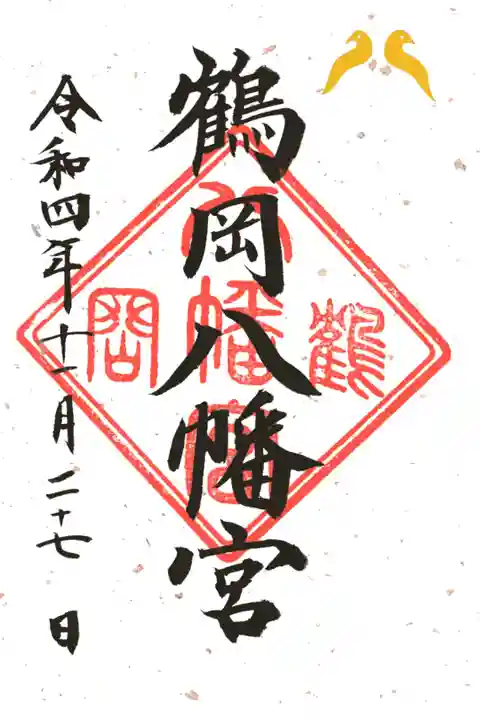 鶴岡八幡宮
令和四年十一月二十七日
鶴
八幡宮
岡